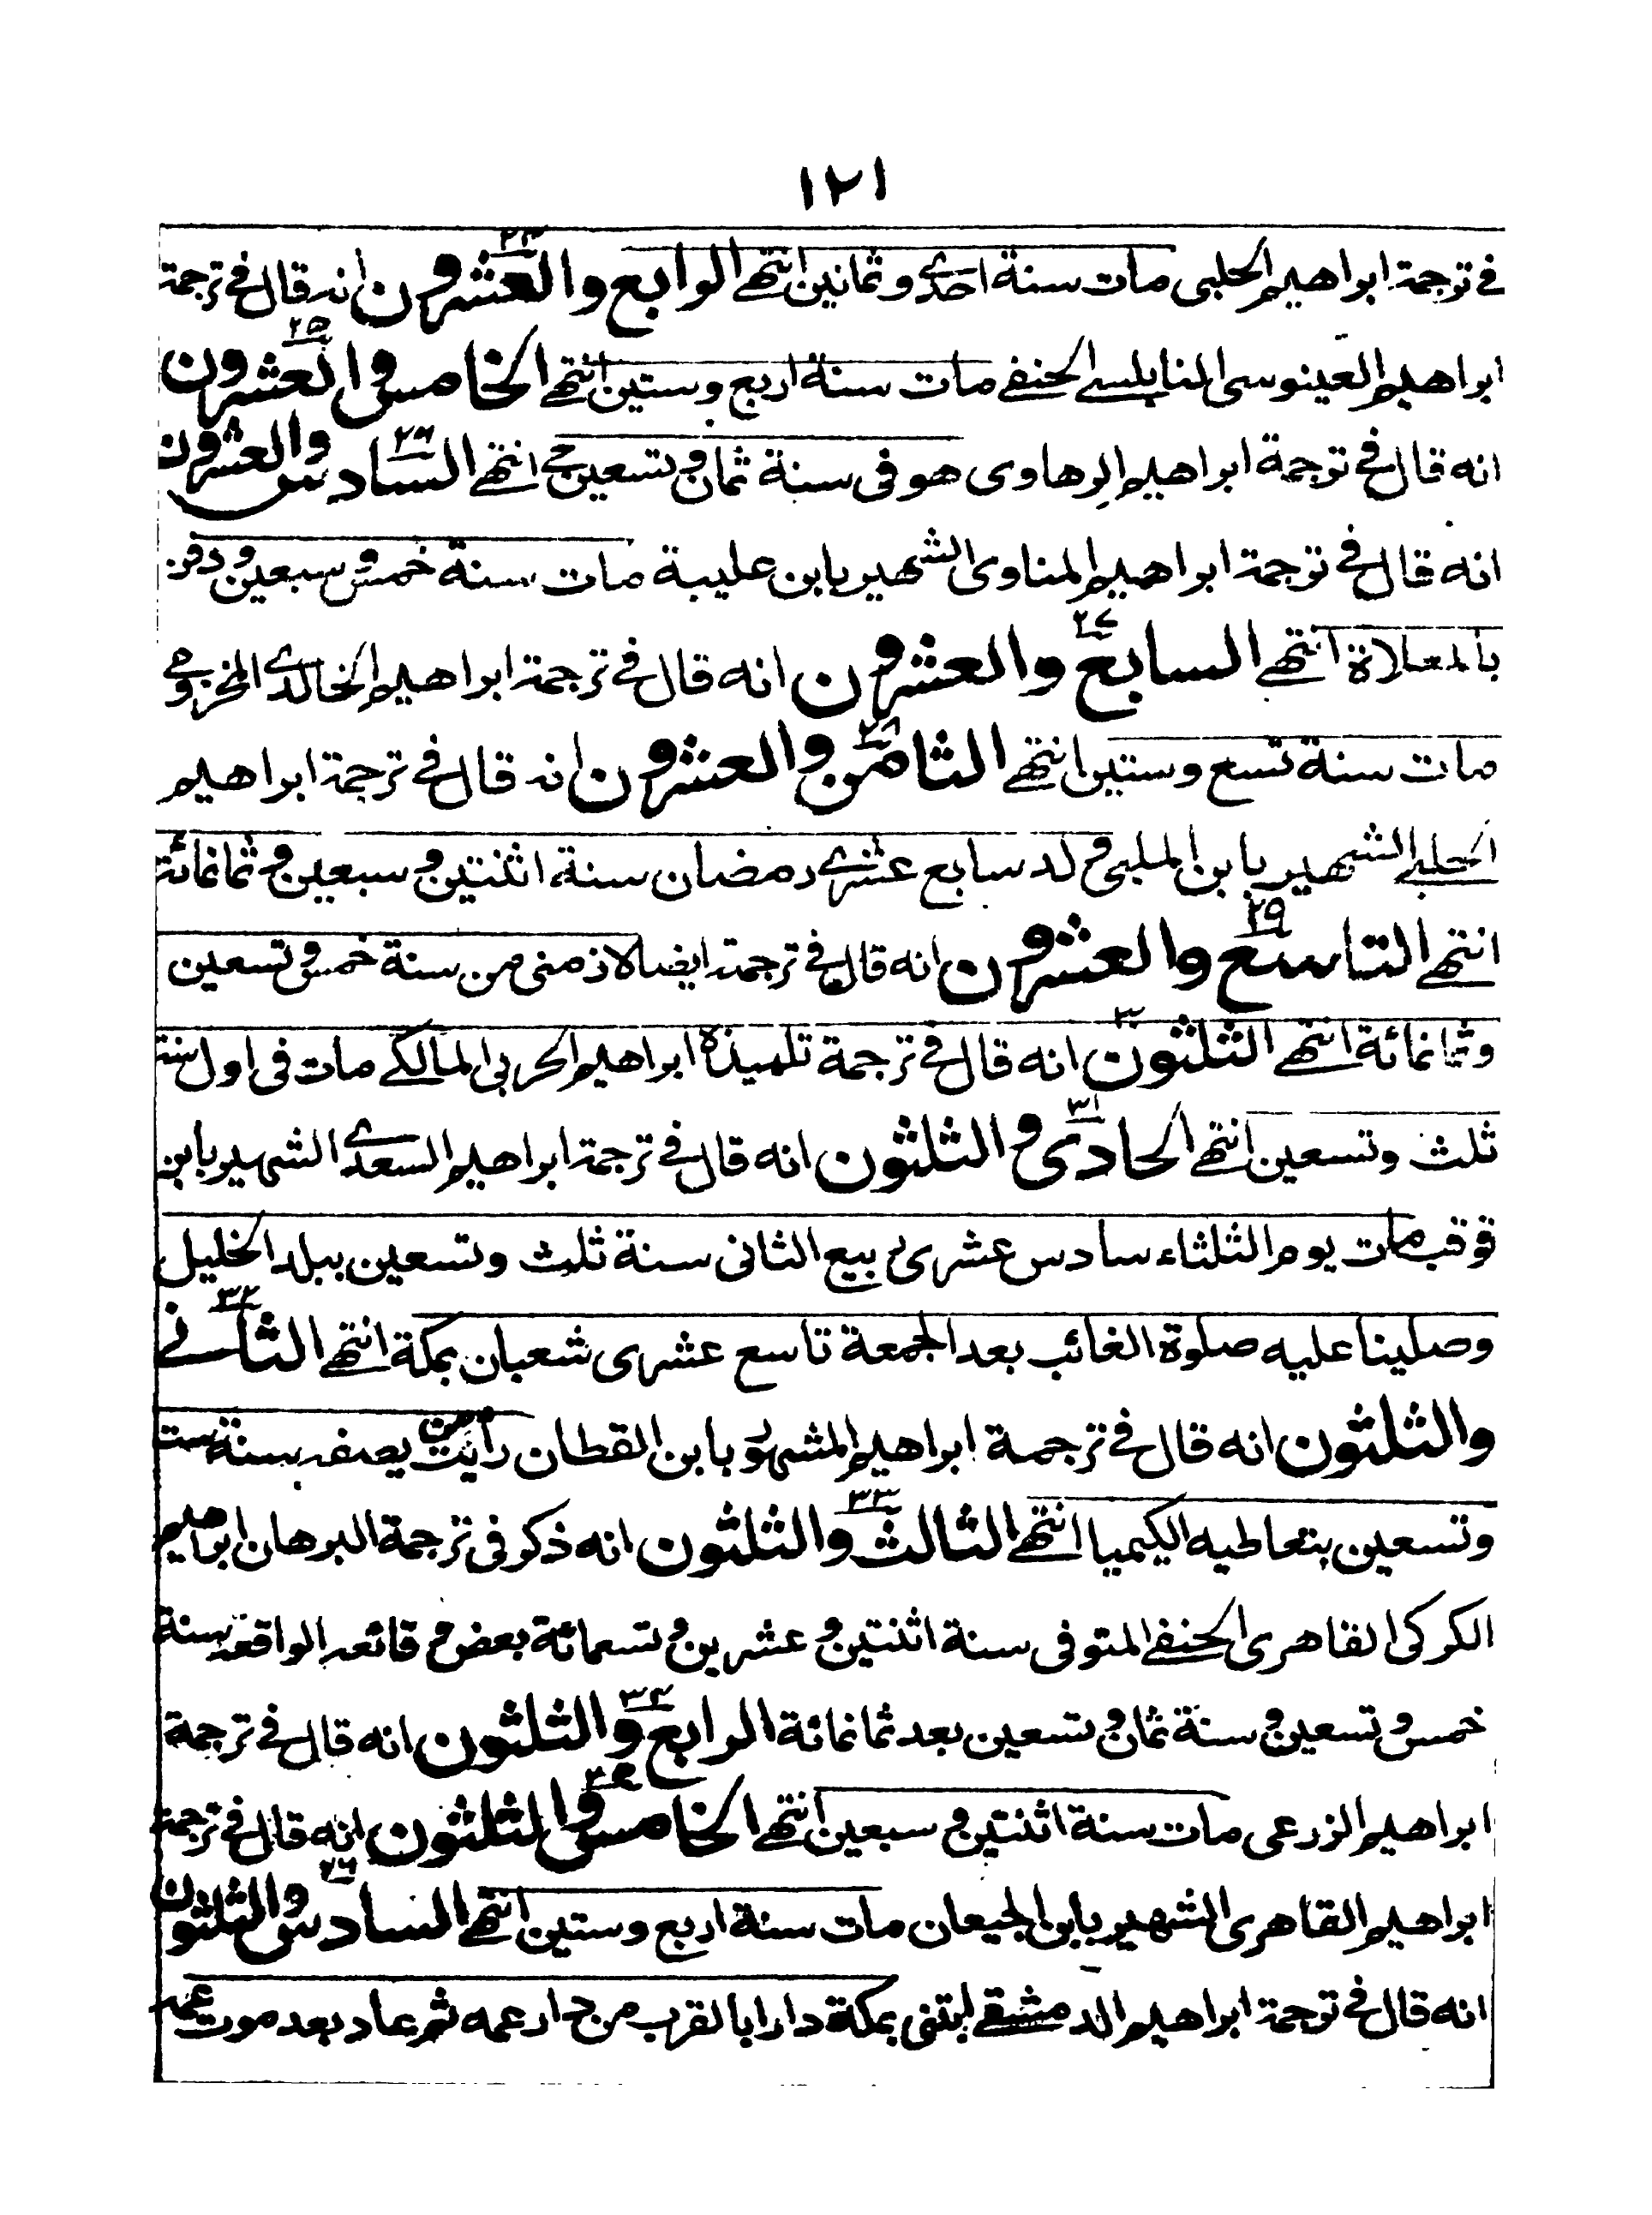 ١٢١
في ترجمة ابراهيم الحلبي مات سنة احدى وثمانين انتهى الرابع والعشرون ٢٤ انه قال في ترجمة
ابراهيم العينوسى النابلسي الحنفي مات سنة اربع وستين انتهى الخامس والعشرون ٢٥
انه قال في ترجمة ابراهيم الرهاوى هو في سنة ثمان وتسعين حي انتهى السادس والعشرون ٢٦
انه قال في ترجمة ابراهيم المناوى الشهير بابن عليبة مات سنة خمس وسبعين ودفن
بالمعلاة انتهى السابع والعشرون ٢٧ انه قال في ترجمة ابراهيم الخالدي المخزومي
مات سنة تسع وستين انتهى الثامن والعشرون ٢٨ انه قال في ترجمة ابراهيم
الحلبي الشهير بابن ولد سابع عشرى رمضان سنة اثنتين وسبعين وثمانمائة
انتهى التاسع والعشرون ٢٩ انه قال في ترجمته ايضا لازمنى من سنة خمس وتسعين
وثمانمائة انتهى الثلثون ٣٠ انه قال في ترجمة تلميذه ابراهيم الحربي المالكي مات في اول سنة
ثلث وتسعين انتهى الحادى والثلثون ٣١ انه قال في ترجمة ابراهيم السعدي الشهير بابن
قوقب مات يوم الثلثاء سادس عشرى ربيع الثانى سنة ثلث وتسعين ببلد الخليل
وصلينا عليه صلوة الغائب بعد الجمعة تاسع عشرى شعبان بمكة انتهى الثاني ٣٢
والثلثون انه قال في ترجمة ابراهيم المشهور بابن القطان رأيت من يصفه سنة ست
وتسعين بتعاطيه الكيميا انتهى الثالث والثلثون ٣٣ انه ذكر في ترجمة البرهان ابراهيم
الكركى القاهرى الحنفي المتوفى سنة اثنتين وعشرين وتسعمائة بعض وقائعه الواقعة سنة
خمس وتسعين وسنة ثمان وتسعين بعد ثمانمائة الرابع والثلثون ٣٤ انه قال في ترجمة
ابراهيم الزرعى مات سنة اثنتين وسبعين انتهى الخامس والثلثون ٣٥ انه قال في ترجمة
ابراهيم القاهرى الشهير بابن الجيعان مات سنة اربع وستين انتهى السادس والثلثون ٣٦
انه قال في ترجمة ابراهيم الدمشقي ابتنى بمكة دارا بالقرب من دار عمه ثم عاد بعد موت عمه